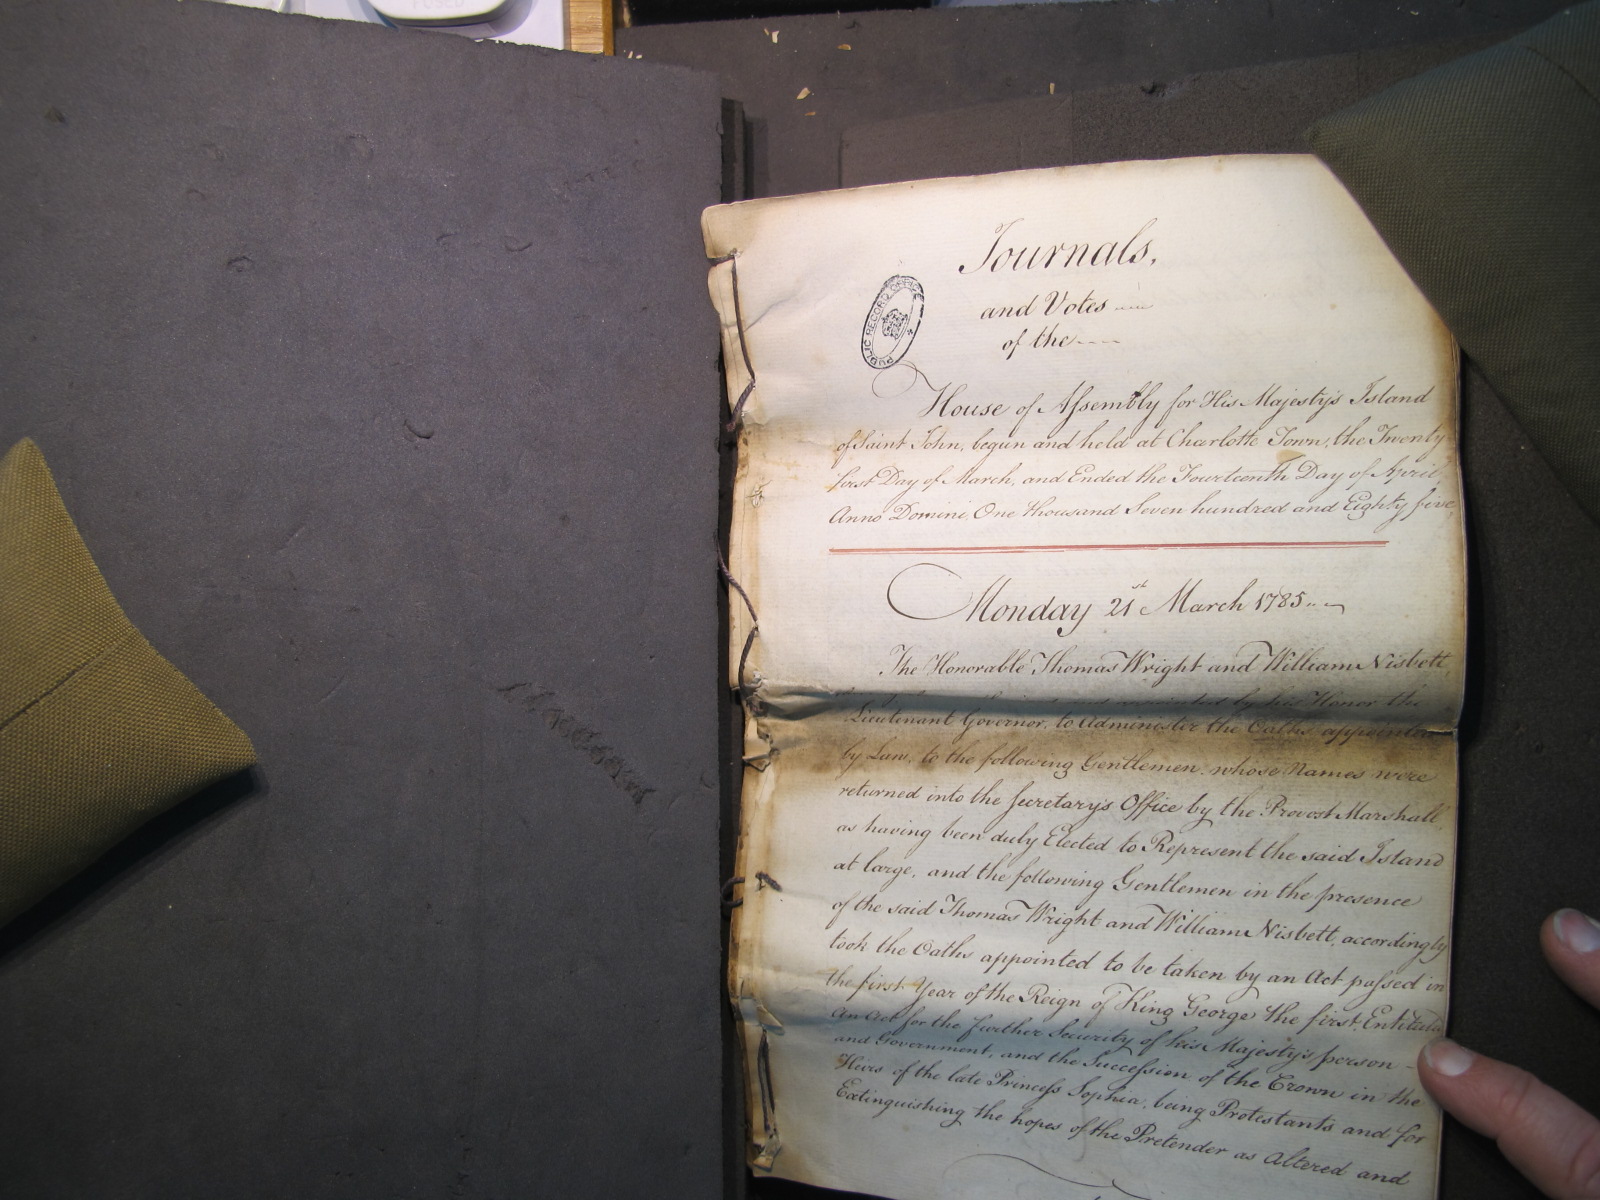 FUSED
Journals,
PUBLIC RECORD OFFICE
and Votes
of the
House of Assembly for His Majesty's Island
of Saint John, begun and held at Charlotte Town, the Twenty
first Day of March, and Ended the Fourteenth Day of April,
Anno Domini, One thousand Seven hundred and Eighty five
Monday 21st March 1785
The Honorable Thomas Wright and William Nisbett,
appointed by his Honor the
Lieutenant Governor, to Administer the Oaths appointed
by Law, to the following Gentlemen whose Names were
returned into the Secretary's Office by the Provost Marshall,
as having been duly Elected to Represent the said Island
at large, and the following Gentlemen in the presence
of the said Thomas Wright and William Nisbett, accordingly
took the Oaths appointed to be taken by an Act passed in
the first Year of the Reign of King George the first, Entituled
An Act for the further Security of his Majesty's person
and Government, and the Succession of the Crown in the
Heirs of the late Princess Sophia, being Protestants and for
Extinguishing the hopes of the Pretender as Altered and